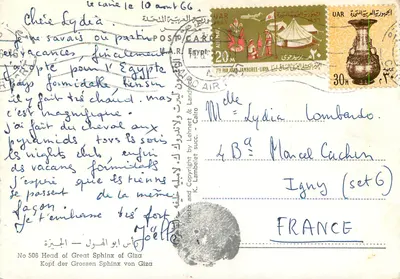 le caire, le 10 août 66
Chère Lydia
je ne savais où partir
en vacances, finalement
j'ai opté pour l'Egypte
pays formidable bien sûr
il y fait très chaud, mais
c'est magnifique.
j'ai fait du cheval aux
pyramids tous les soirs
les night club, enfin
des vacances formidables
j'espère que les tiennes
se passent de la même
façon.
je t'embrasse très fort
Joëlle
POSTCARD
A.R. Egypt
UAR
20 M
UAR
30 M
Melle
Lydia Lombardo
4 Bd Marcel Cachin
Igny (S et O)
FRANCE
Copyright by Lehnert & Landrock
K. Lambelet succ. Cairo
رأس أبو الهول - الجيزة
No 506 Head of Great Sphinx of Giza
Kopf der Grossen Sphinx von Giza